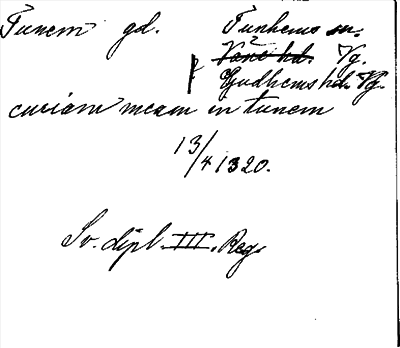 Tunem gd. Tunhems sn.
Väne hd. Vg.
Gudhems hd. Vg.
curiam meam in tunem
13/4 1320.
Sv. dipl. III. Reg.